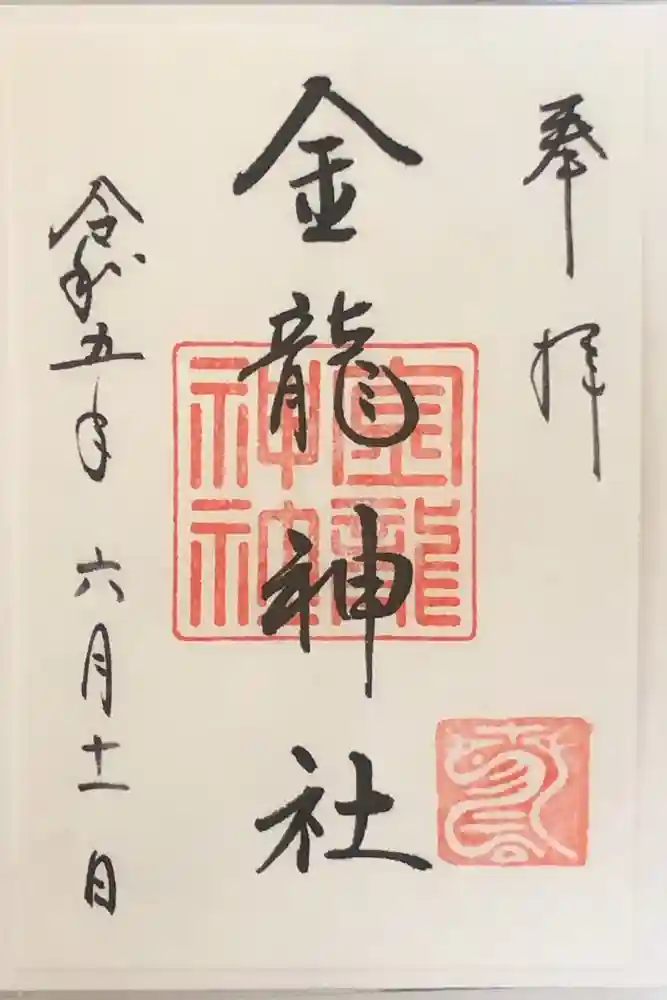 奉拝
金龍神社
金龍
神社
令和五年 六月十一日